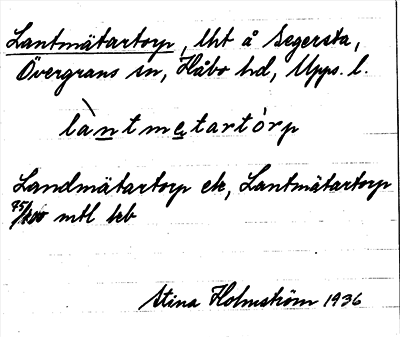 Lantmätartorp, lht å Segersta,
Övergrans sn, Håbo hd, Upps. l.
làntmetartórp
Landmätartorp ek, Lantmätartorp
75/100 mtl jrb
Stina Holmström 1936